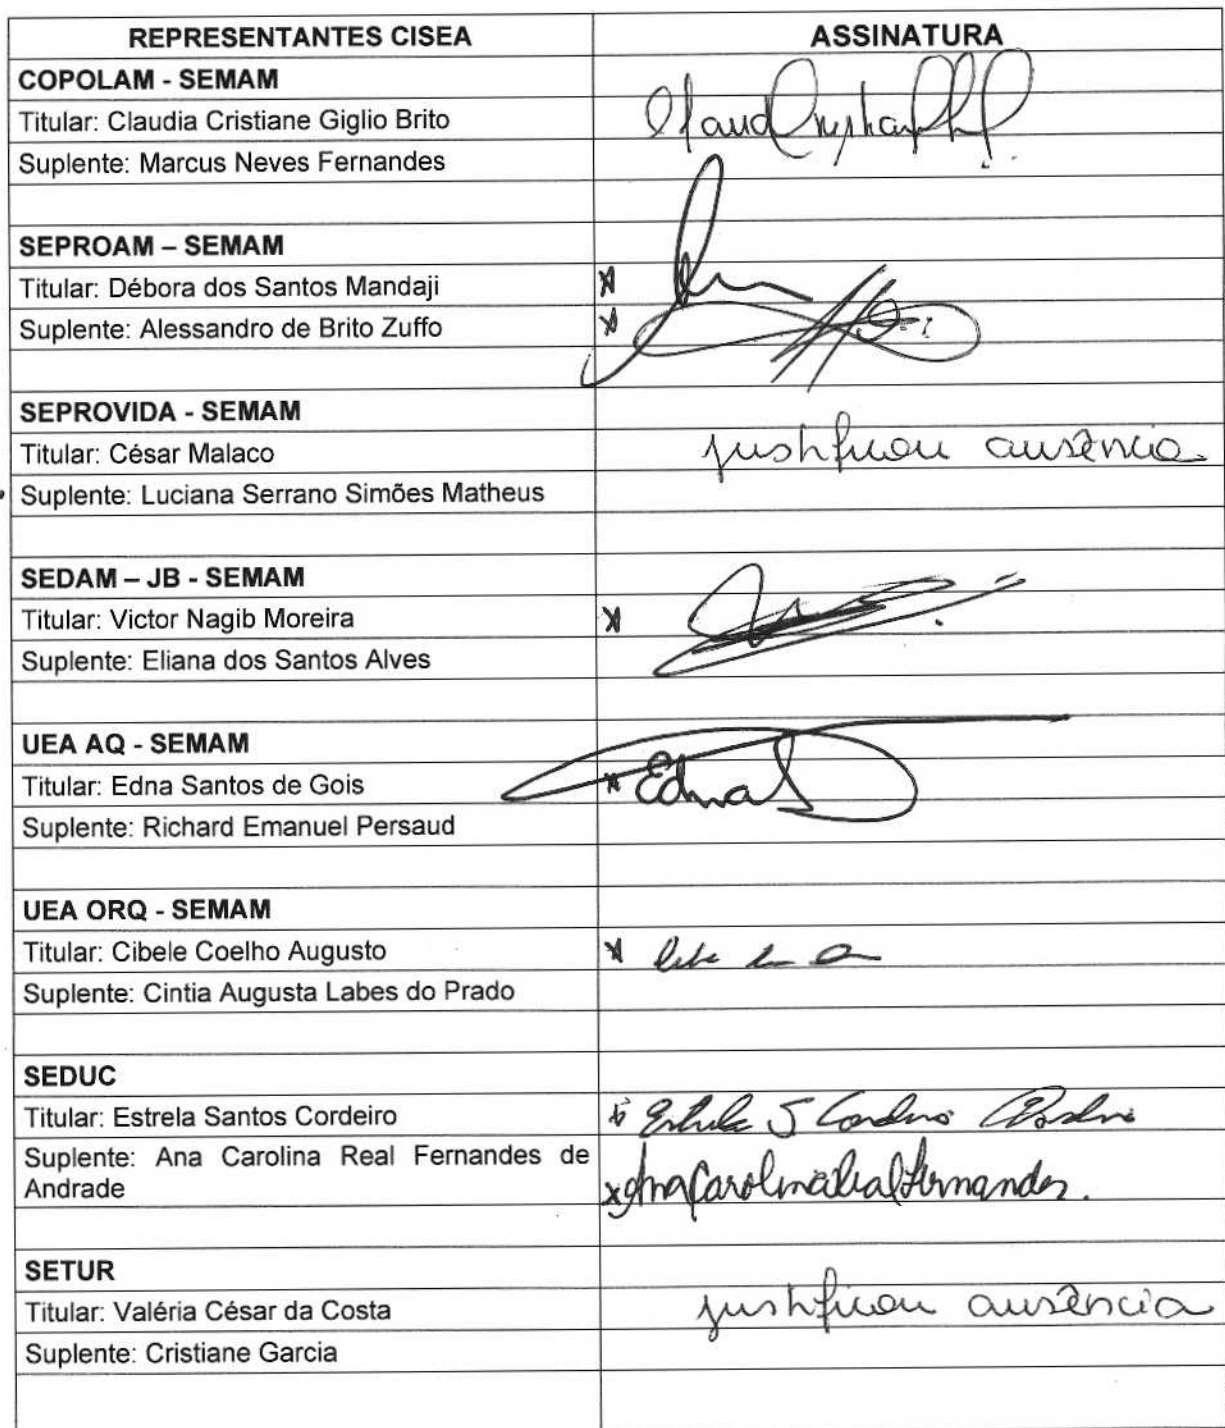 REPRESENTANTES CISEA ASSINATURA
COPOLAM - SEMAM
Titular: Claudia Cristiane Giglio Brito
Suplente: Marcus Neves Fernandes
SEPROAM – SEMAM
Titular: Débora dos Santos Mandaji
Suplente: Alessandro de Brito Zuffo
SEPROVIDA - SEMAM
Titular: César Malaco justificou ausência
Suplente: Luciana Serrano Simões Matheus
SEDAM – JB - SEMAM
Titular: Victor Nagib Moreira
Suplente: Eliana dos Santos Alves
UEA AQ - SEMAM
Titular: Edna Santos de Gois Edna
Suplente: Richard Emanuel Persaud
UEA ORQ - SEMAM
Titular: Cibele Coelho Augusto
Suplente: Cintia Augusta Labes do Prado
SEDUC
Titular: Estrela Santos Cordeiro Estrela S Cordeiro
Suplente: Ana Carolina Real Fernandes de
Andrade x Ana Carolina Real Fernandes.
SETUR
Titular: Valéria César da Costa justificou ausência
Suplente: Cristiane Garcia